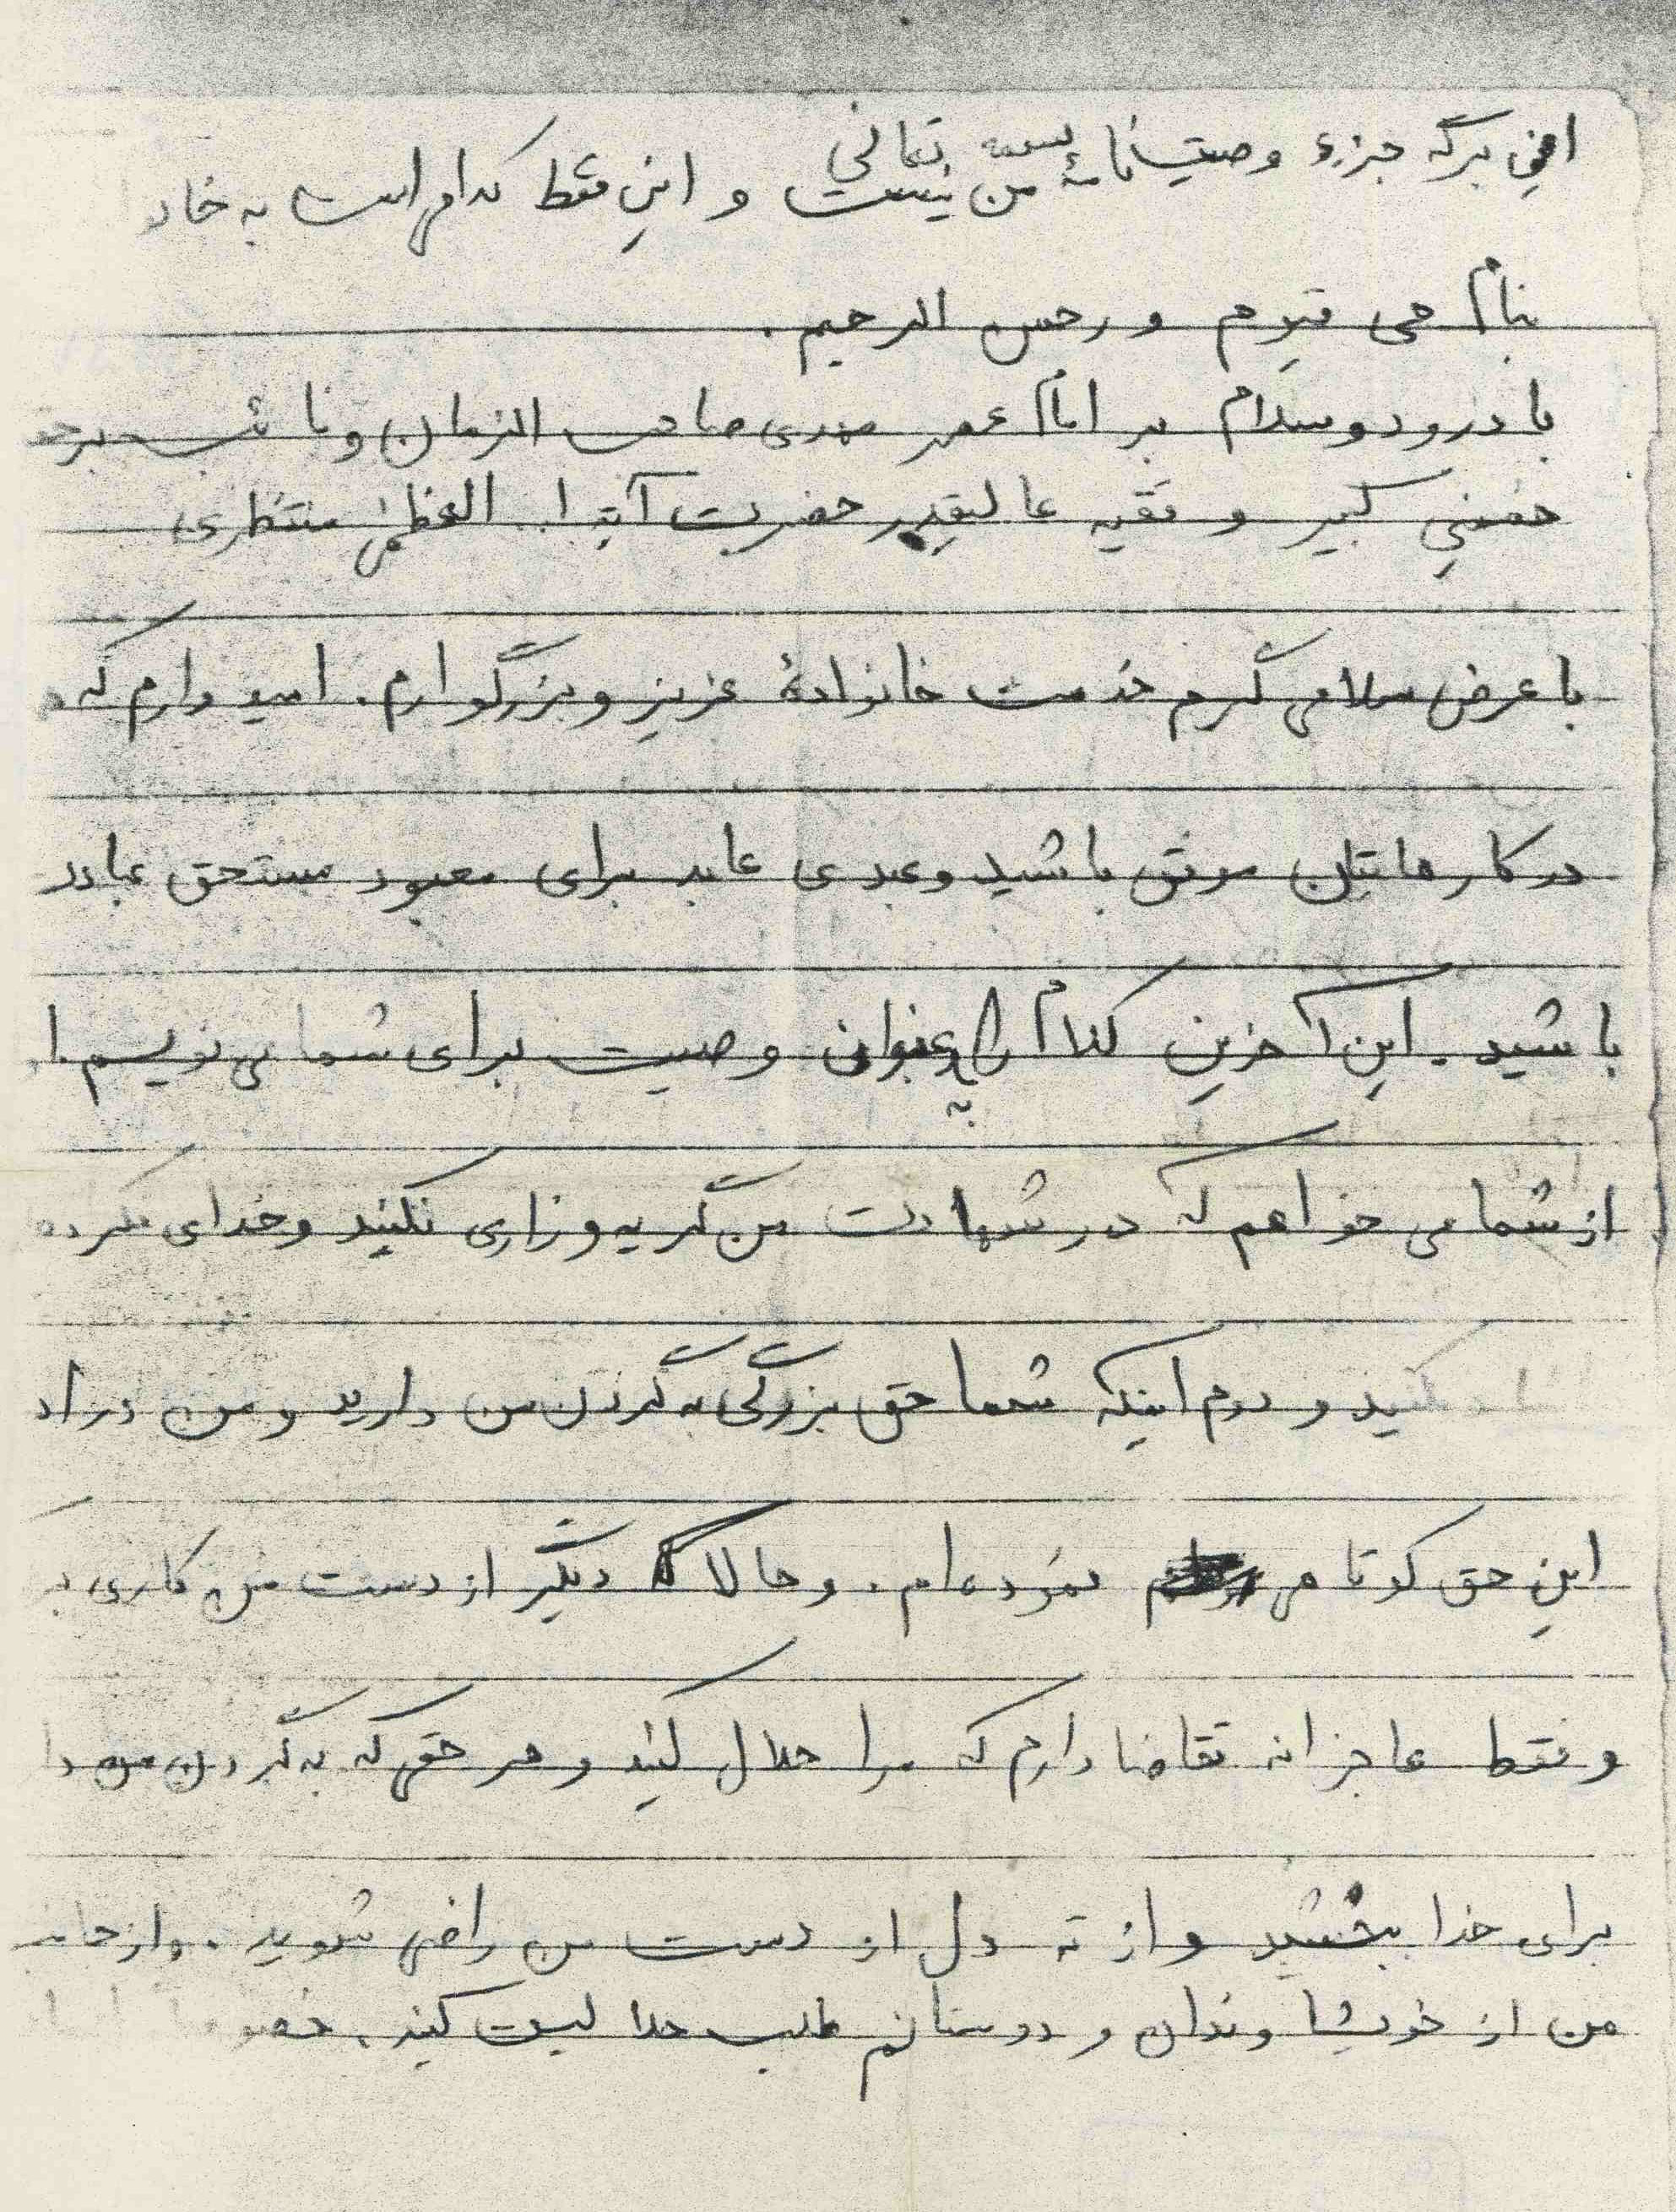 بسمه تعالی
این برگه جزء وصیتنامهٔ من نیست و این فقط کلام است به خانو
بنام حی قیوم و رحمن الرحیم.
با درود و سلام بر امام عصر مهدی صاحب الزمان و نائب برحق
خمینی کبیر و فقیه عالیقدر حضرت آیة ا.. العظمی منتظری
با عرض سلامی گرم خدمت خانوادهٔ عزیز و بزرگوارم. امیدوارم که
در کارهایتان موفق باشید و عبدی عابد برای معبود مستحق عبادت
باشید. این آخرین کلام را به عنوان وصیت برای شما می نویسم.
از شما می خواهم که در شهادت من گریه و زاری نکنید و خدای نکرده
کنید و دوم اینکه شما حق بزرگی به گردن من دارید و من در اد
این حق کوتاهی نموده ام. و حالا که دیگر از دست من کاری
و فقط عاجزانه تقاضا دارم که مرا حلال کنید و هر حقی که به گردن من دا
برای خدا ببخشید و از ته دل از دست من راضی شوید. و از جانب
من از خویشاوندان و دوستانم طلب حلالیت کنید.